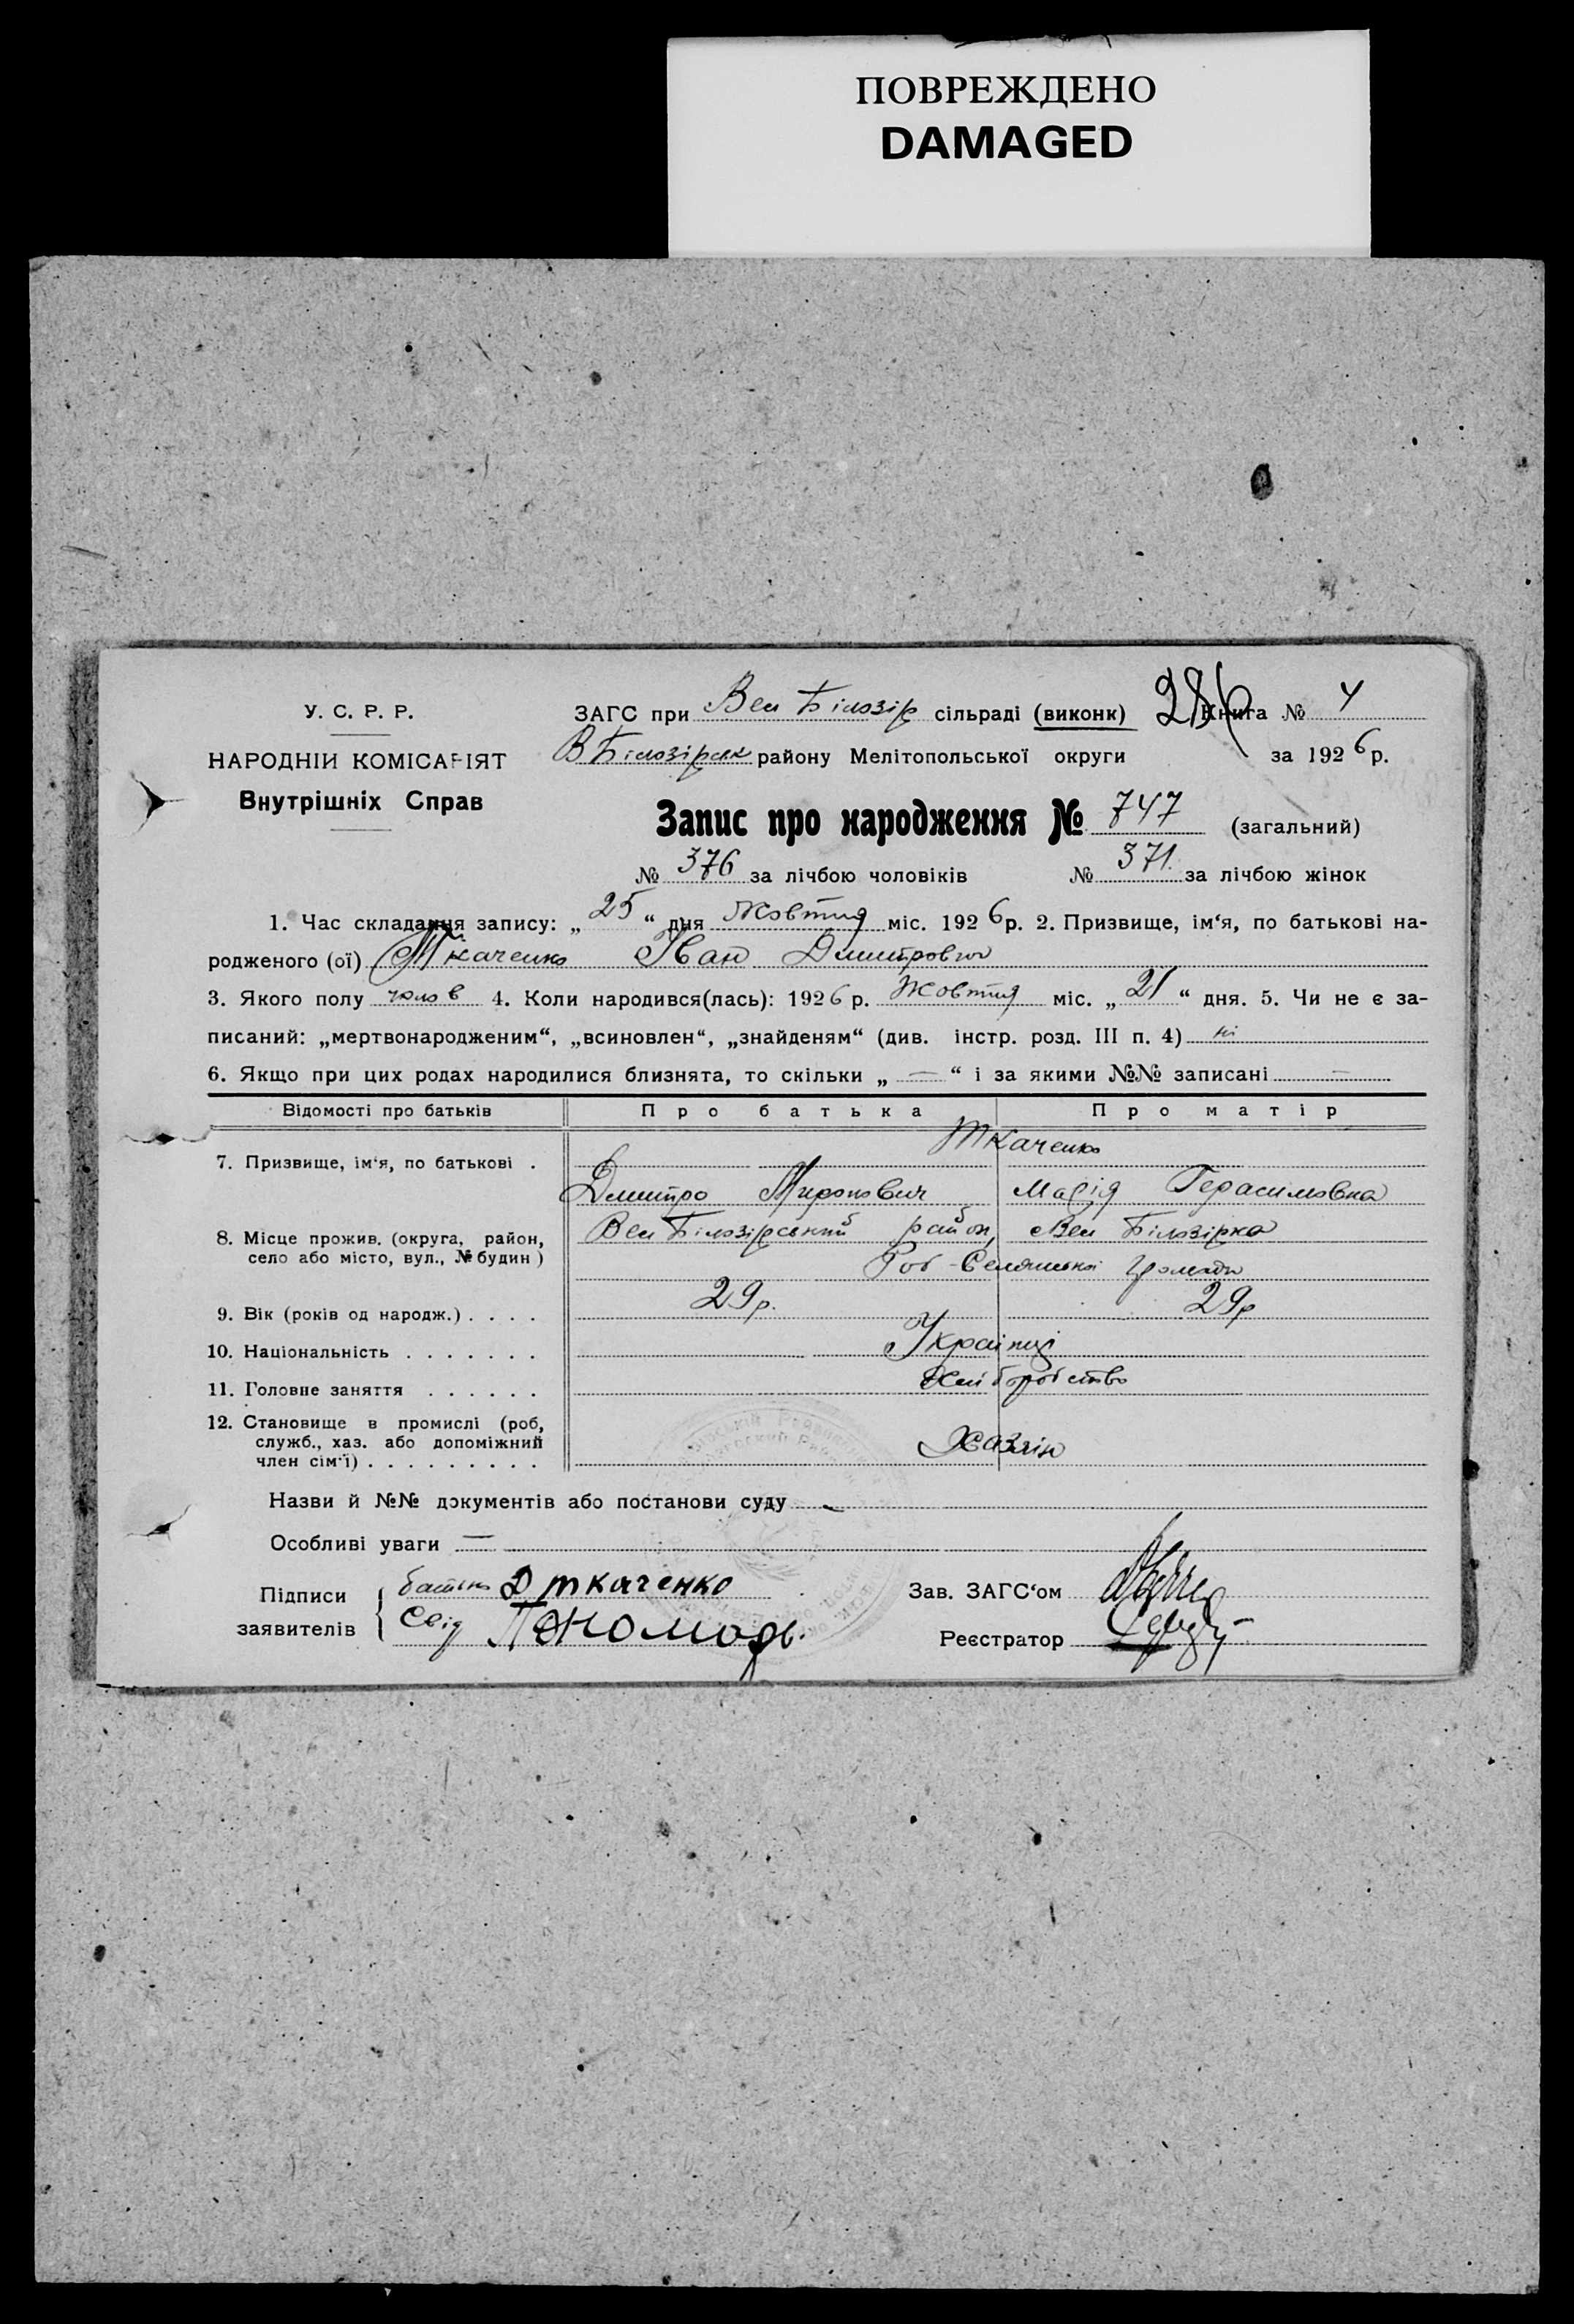 ПОВРЕЖДЕНО
DAMAGED
У. С. Р. Р.
НАРОДНІЙ КОМІСАРІЯТ
Внутрішніх Справ
ЗАГС при Вел Білозір сільраді (виконк) 286 Книга № 4
В Білозірськ району Мелітопольської округи за 1926 р.
Запис про народження № 747 (загальний)
№ 376 за лічбою чоловіків № 371 за лічбою жінок
1. Час складання запису: „25“ дня Жовтня міс. 1926 р. 2. Призвище, ім‘я, по батькові на-
родженого (ої) Ткаченко Іван Дмитрович
3. Якого полу чолов 4. Коли народився(лась): 1926 р. Жовтня міс. „21“ дня. 5. Чи не є за-
писаний: „мертвонародженим“, „всиновлен“, „знайденям“ (див. інстр. розд. III п. 4) ні
6. Якщо при цих родах народилися близнята, то скільки „—“ і за якими №№ записані —
Відомості про батьків Про батька Про матір
7. Призвище, ім‘я, по батькові . Ткаченко
Дмитро Миронович Марія Герасимовна
8. Місце прожив. (округа, район, село або місто, вул., № будин) Вел Білозірський район, Вел Білозірка
Роб-Селянської громади
9. Вік (років од народж.) . . . . 29 р. 29 р
10. Національність . . . . . . . Українці
11. Головне заняття . . . . . . Хліборобство
12. Становище в промислі (роб, служб., хаз. або допоміжний член сім‘ї) . . . . . . . . . Хазяїн
Назви й №№ документів або постанови суду —
Особливі уваги —
Підписи заявителів { батько Д ткаченко
Свід Пономарь.
Зав. ЗАГС‘ом
Реєстратор